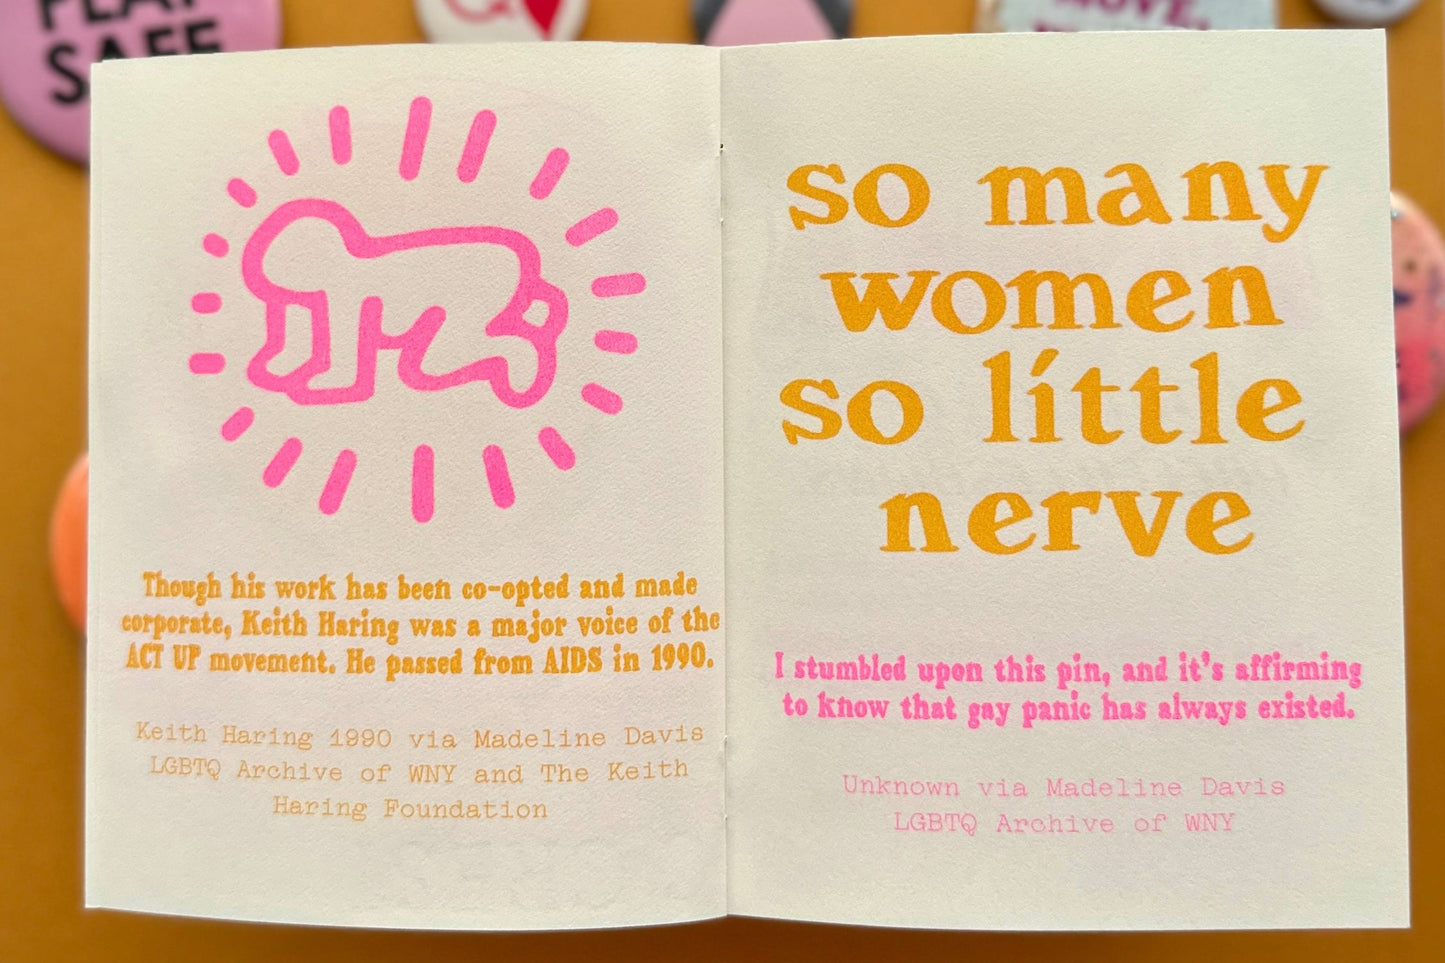 PLAY
SAFE
Q
MOVE,
Though his work has been co-opted and made
corporate, Keith Haring was a major voice of the
ACT UP movement. He passed from AIDS in 1990.
Keith Haring 1990 via Madeline Davis
LGBTQ Archive of WNY and The Keith
Haring Foundation
so many
women
so little
nerve
I stumbled upon this pin, and it's affirming
to know that gay panic has always existed.
Unknown via Madeline Davis
LGBTQ Archive of WNY